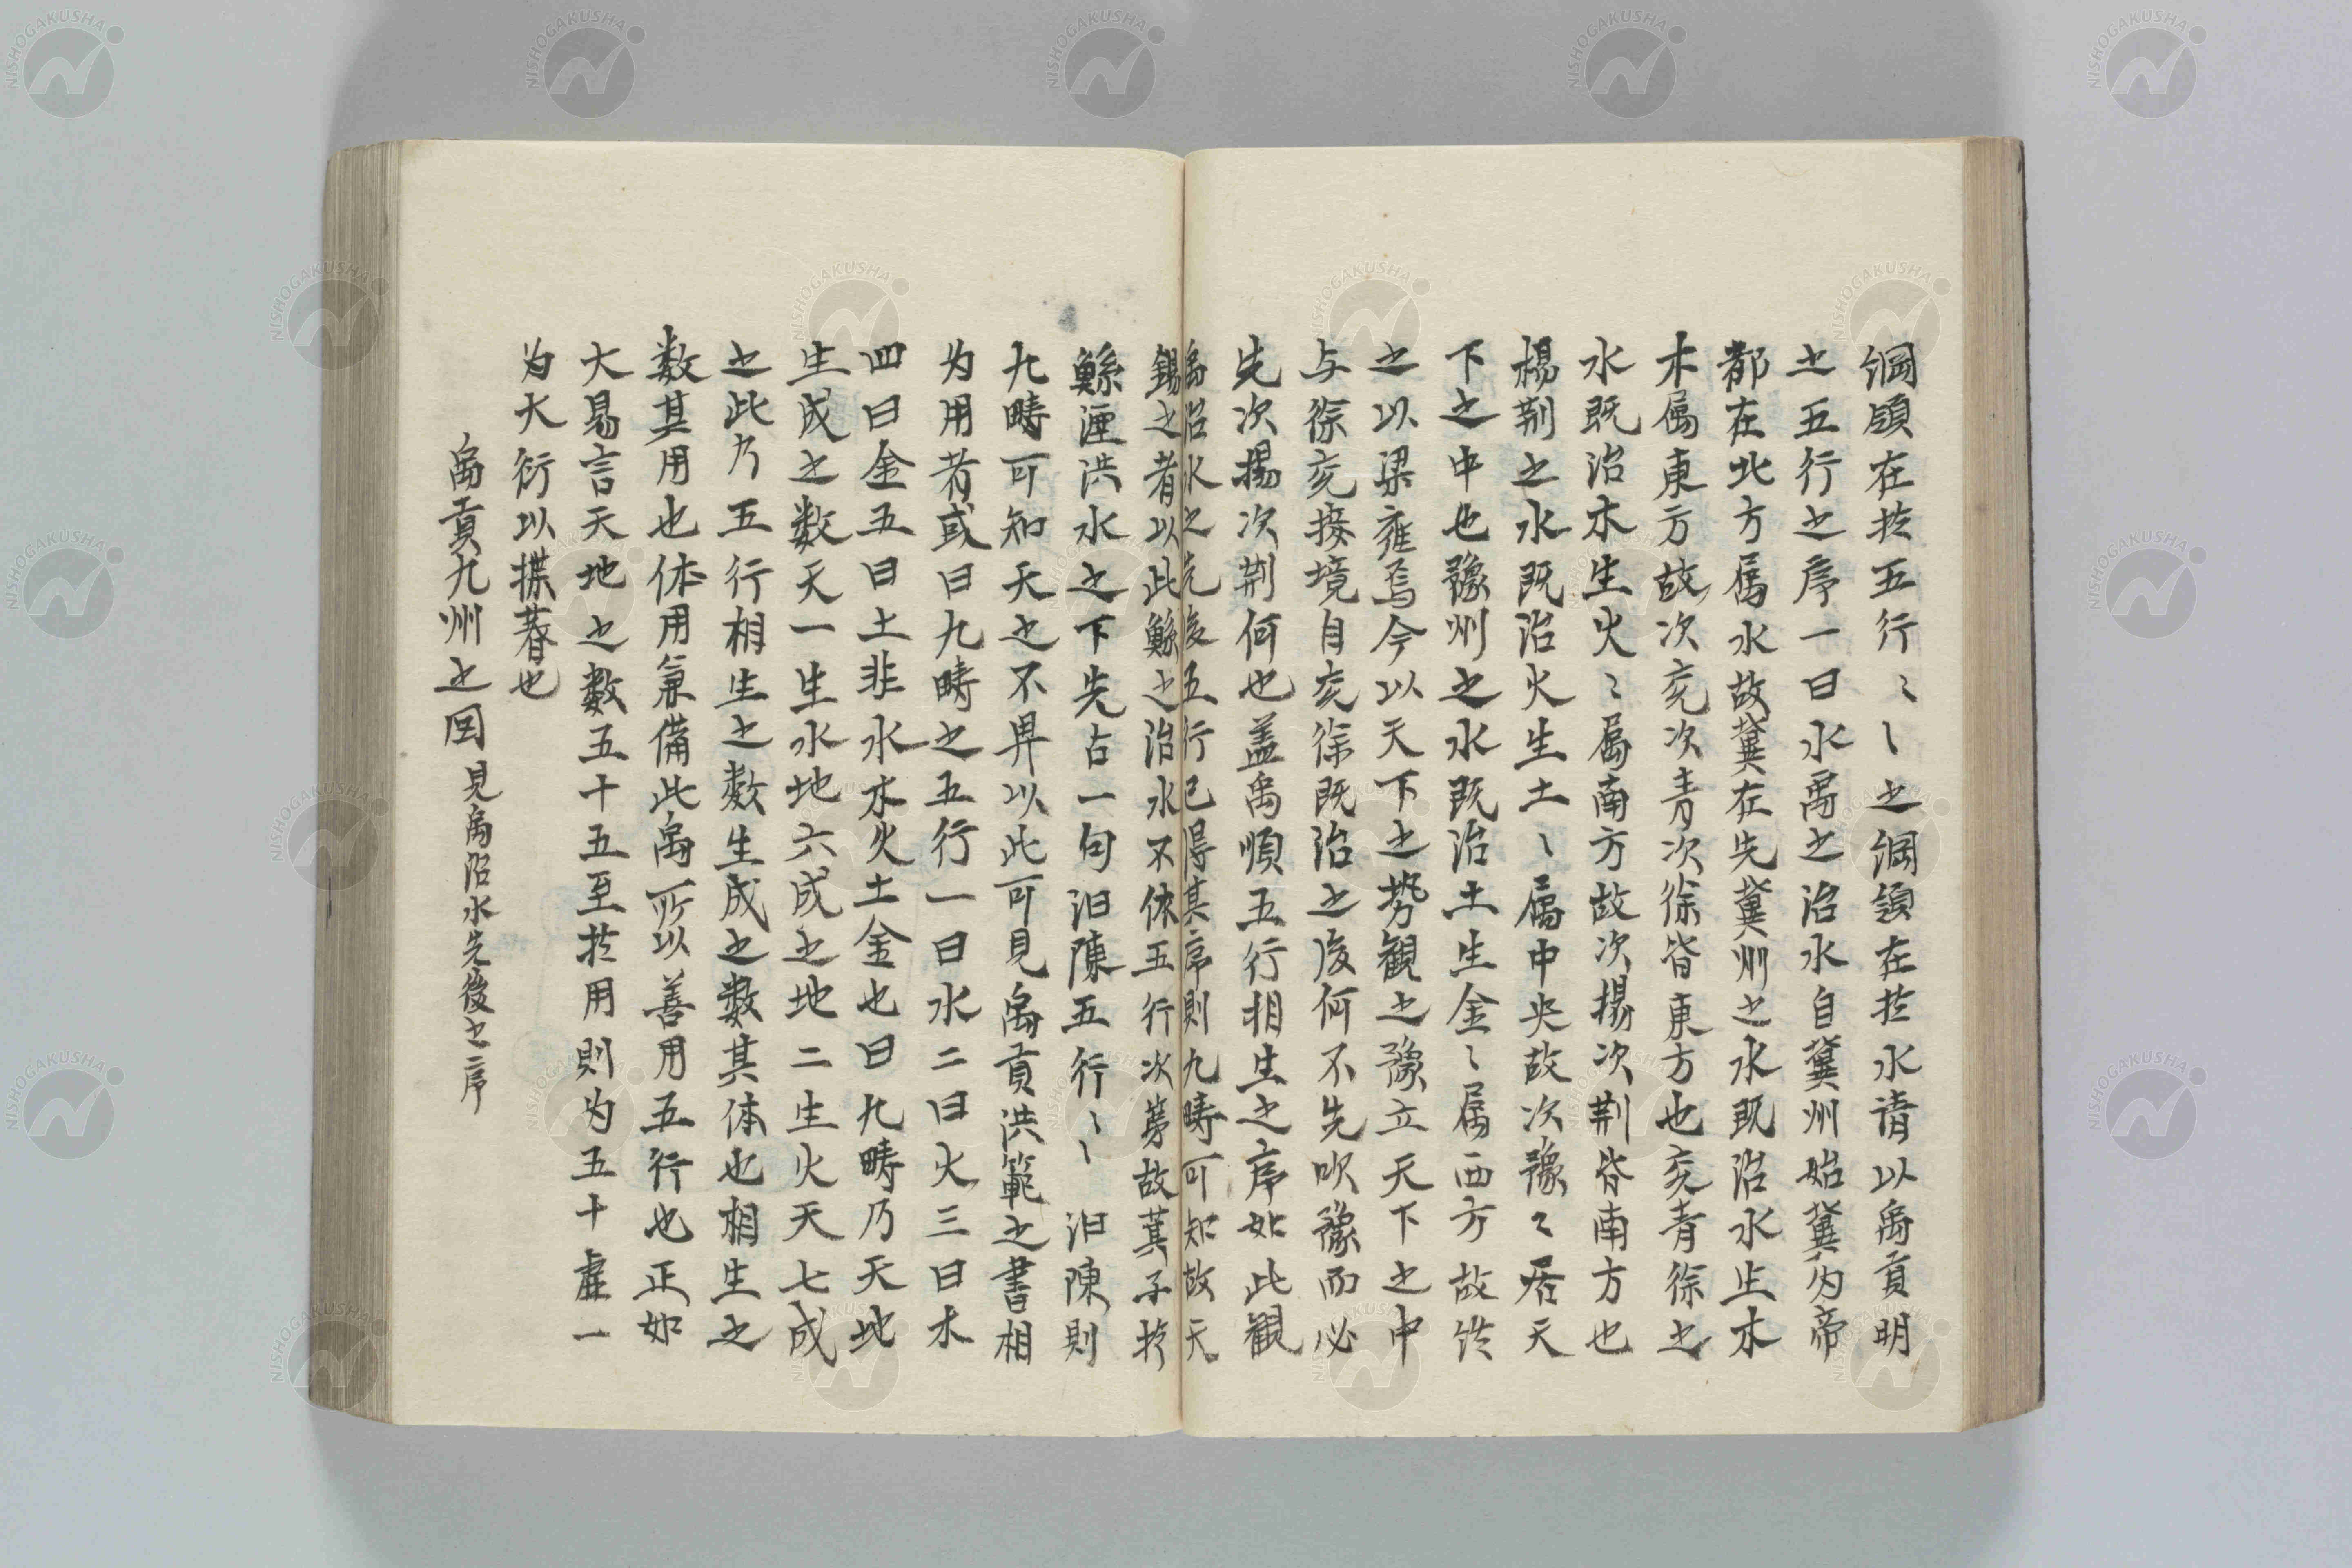 綱領在於五行〻〻之綱領在於水請以禹貢明
之五行之序一曰水禹之治水自冀州始冀為帝
都在北方属水故冀在先冀州之水既治水生木
木属東方故次兗次青次徐皆東方也兗青徐之
水既治木生火〻属南方故次揚次荆皆南方也
楊荆之水既治火生土〻属中央故次豫〻居天
下之中也豫州之水既治土生金〻属西方故終
之以梁雍焉今以天下之勢観之豫立天下之中
与徐兗接境自兗徐既治之後何不先吹豫而必
先次揚次荆何也盖禹順五行相生之序如此観
禹治水之先後五行已得其序則九疇可知故天
錫之者以此鯀之治水不休五行次苐故萁子於
鯀湮洪水之下先占一句汨陳五行〻〻汨陳則
九疇可知天之不畀以此可見禹貢洪範之書相
为用者或曰九疇之五行一曰水二曰火三曰木
四曰金五曰土非水木火土金也曰九疇乃天地
生成之数天一生水地六成之地二生火天七成
之此乃五行相生之数生成之数其体也相生之
数其用也体用兼備此禹所以善用五行也正如
大易言天地之数五十五至於用則为五十虚一
为大衍以揲蓍也
禹貢九州之図 見禹治水先後之序
NISHOGAKUSHA